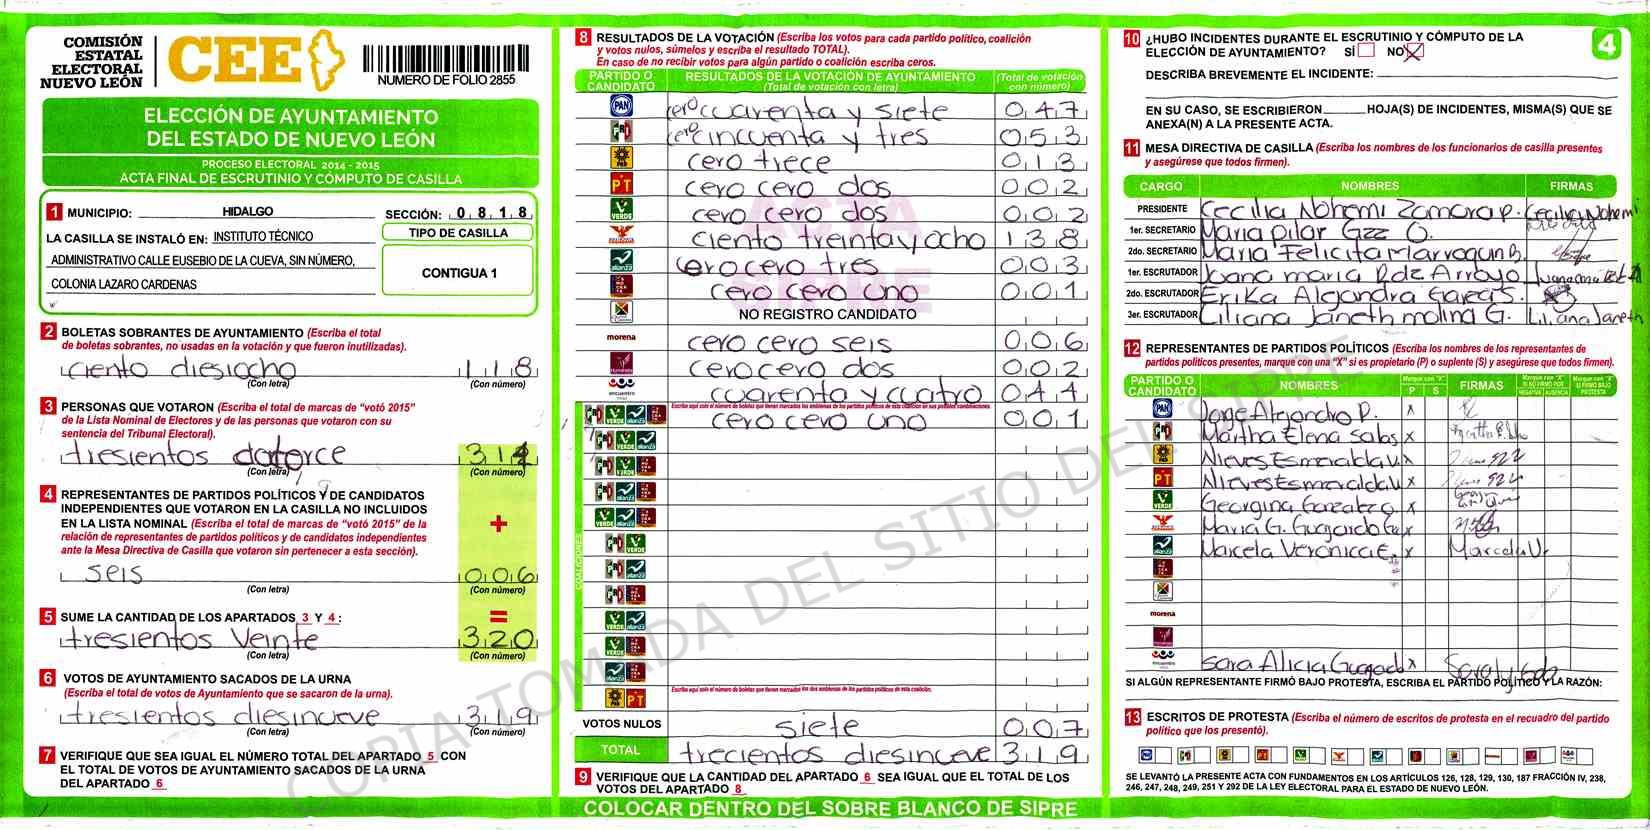 COMISIÓN
ESTATAL
ELECTORAL
NUEVO LEÓN
CEE
NUMERO DE FOLIO 2855
ELECCIÓN DE AYUNTAMIENTO
DEL ESTADO DE NUEVO LEÓN
PROCESO ELECTORAL 2014 - 2015
ACTA FINAL DE ESCRUTINIO Y CÓMPUTO DE CASILLA
1 MUNICIPIO: HIDALGO SECCIÓN: 0 8 1 8
LA CASILLA SE INSTALÓ EN: INSTITUTO TÉCNICO
ADMINISTRATIVO CALLE EUSEBIO DE LA CUEVA, SIN NÚMERO,
COLONIA LAZARO CARDENAS
TIPO DE CASILLA
CONTIGUA 1
2 BOLETAS SOBRANTES DE AYUNTAMIENTO (Escriba el total
de boletas sobrantes, no usadas en la votación y que fueron inutilizadas).
ciento diesiocho 118
(Con letra) (Con número)
3 PERSONAS QUE VOTARON (Escriba el total de marcas de "votó 2015"
de la Lista Nominal de Electores y de las personas que votaron con su
sentencia del Tribunal Electoral).
tresientos catorce 314
(Con letra) (Con número)
4 REPRESENTANTES DE PARTIDOS POLÍTICOS Y DE CANDIDATOS
INDEPENDIENTES QUE VOTARON EN LA CASILLA NO INCLUIDOS
EN LA LISTA NOMINAL (Escriba el total de marcas de "votó 2015" de la
relación de representantes de partidos políticos y de candidatos independientes
ante la Mesa Directiva de Casilla que votaron sin pertenecer a esta sección).
+
seis 006
(Con letra) (Con número)
5 SUME LA CANTIDAD DE LOS APARTADOS 3 Y 4 : =
tresientos veinte 320
(Con letra) (Con número)
6 VOTOS DE AYUNTAMIENTO SACADOS DE LA URNA
(Escriba el total de votos de Ayuntamiento que se sacaron de la urna).
tresientos diesinueve 319
(Con letra) (Con número)
7 VERIFIQUE QUE SEA IGUAL EL NÚMERO TOTAL DEL APARTADO 5 CON
EL TOTAL DE VOTOS DE AYUNTAMIENTO SACADOS DE LA URNA
DEL APARTADO 6
8 RESULTADOS DE LA VOTACIÓN (Escriba los votos para cada partido político, coalición
y votos nulos, súmelos y escriba el resultado TOTAL).
En caso de no recibir votos para algún partido o coalición escriba ceros.
PARTIDO O CANDIDATO RESULTADOS DE LA VOTACIÓN DE AYUNTAMIENTO (Total de votación con letra) (Total de votación con número)
PAN cero cuarenta y siete 047
PRI cero cincuenta y tres 053
PRD cero trece 013
PT cero cero dos 002
VERDE cero cero dos 002
ciento treinta y ocho 138
alianza cero cero tres 003
cero cero uno 001
NO REGISTRO CANDIDATO
morena cero cero seis 006
cero cero dos 002
encuentro cuarenta y cuatro 044
cero cero uno 001
COALICIONES
VOTOS NULOS siete 007
TOTAL trecientos diesinueve 319
9 VERIFIQUE QUE LA CANTIDAD DEL APARTADO 6 SEA IGUAL QUE EL TOTAL DE LOS
VOTOS DEL APARTADO 8
COLOCAR DENTRO DEL SOBRE BLANCO DE SIPRE
ACTA
SIPRE
COPIA TOMADA DEL SITIO DEL SIPRE
4
10 ¿HUBO INCIDENTES DURANTE EL ESCRUTINIO Y CÓMPUTO DE LA
ELECCIÓN DE AYUNTAMIENTO? SÍ NO X
DESCRIBA BREVEMENTE EL INCIDENTE:
EN SU CASO, SE ESCRIBIERON HOJA(S) DE INCIDENTES, MISMA(S) QUE SE
ANEXA(N) A LA PRESENTE ACTA.
11 MESA DIRECTIVA DE CASILLA (Escriba los nombres de los funcionarios de casilla presentes
y asegúrese que todos firmen).
CARGO NOMBRES FIRMAS
PRESIDENTE Cecilia Nohemi Zamora P. Cecilia Nohemi
1er. SECRETARIO Maria Pilar Gzz O.
2do. SECRETARIO Maria Felicita Marroquin B.
1er. ESCRUTADOR Juana maria Rdz Arroyo
2do. ESCRUTADOR Erika Alejandra Garcia S.
3er. ESCRUTADOR Liliana Janeth molina G. Liliana Janeth
12 REPRESENTANTES DE PARTIDOS POLÍTICOS (Escriba los nombres de los representantes de
partidos políticos presentes, marque con una "X" si es propietario (P) o suplente (S) y asegúrese que todos firmen).
PARTIDO O CANDIDATO NOMBRES Marque con "X" P S FIRMAS Marque con "X" SI NO FIRMÓ POR NEGATIVA AUSENCIA Marque con "X" SI FIRMÓ BAJO PROTESTA
PAN Jorge Alejandro P. x
PRI Martha Elena Salas x
PRD Nieves Esmeralda V. x
PT Nieves Esmeralda V. x
VERDE Georgina Gonzalez x
Maria G. Guajardo x
alianza Marcela Veronica E. x Marcela V.
morena
encuentro Sara Alicia Guajardo x
SI ALGÚN REPRESENTANTE FIRMÓ BAJO PROTESTA, ESCRIBA EL PARTIDO POLÍTICO Y LA RAZÓN:
13 ESCRITOS DE PROTESTA (Escriba el número de escritos de protesta en el recuadro del partido
político que los presentó).
SE LEVANTÓ LA PRESENTE ACTA CON FUNDAMENTOS EN LOS ARTÍCULOS 126, 128, 129, 130, 187 FRACCIÓN IV, 238,
246, 247, 248, 249, 251 Y 292 DE LA LEY ELECTORAL PARA EL ESTADO DE NUEVO LEÓN.